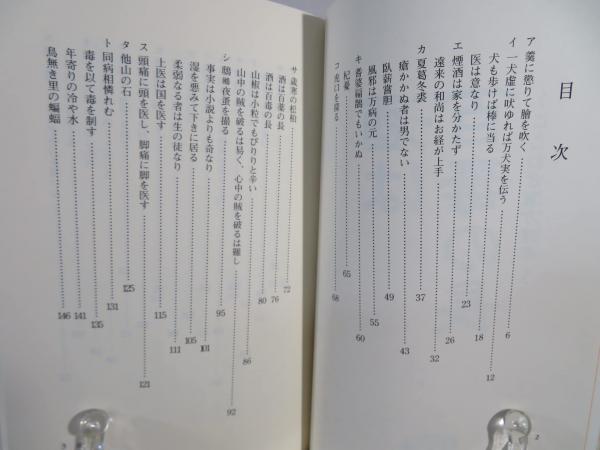 目次
ア 羹に懲りて膾を吹く 6
イ 一犬虚に吠ゆれば万犬実を伝う 12
犬も歩けば棒に当る 18
医は意なり 23
エ 煙酒は家を分かたず 26
遠来の和尚はお経が上手 32
カ 夏葛冬裘 37
瘡かかぬ者は男でない 43
臥薪嘗胆 49
風邪は万病の元 55
キ 耆婆扁鵲でもいかぬ 60
杞憂 65
コ 虎口を探る 68
2
サ 歳寒の松柏 72
酒は百薬の長 76
酒は百毒の長 80
山椒は小粒でもぴりりと辛い 86
山中の賊を破るは易く、心中の賊を破るは難し 92
シ 鴟鵂夜蚤を撮る 95
事実は小説よりも奇なり 101
湿を悪みて下きに居る 105
柔弱なる者は生の徒なり 111
上医は国を医す 115
ス 頭痛に頭を医し、脚痛に脚を医す 121
タ 他山の石 125
ト 同病相憐れむ 131
毒を以て毒を制す 135
年寄りの冷や水 141
鳥無き里の蝙蝠 146
3